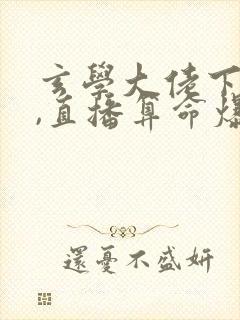 玄學大佬下
,直播算命爆
還憂不盛妍